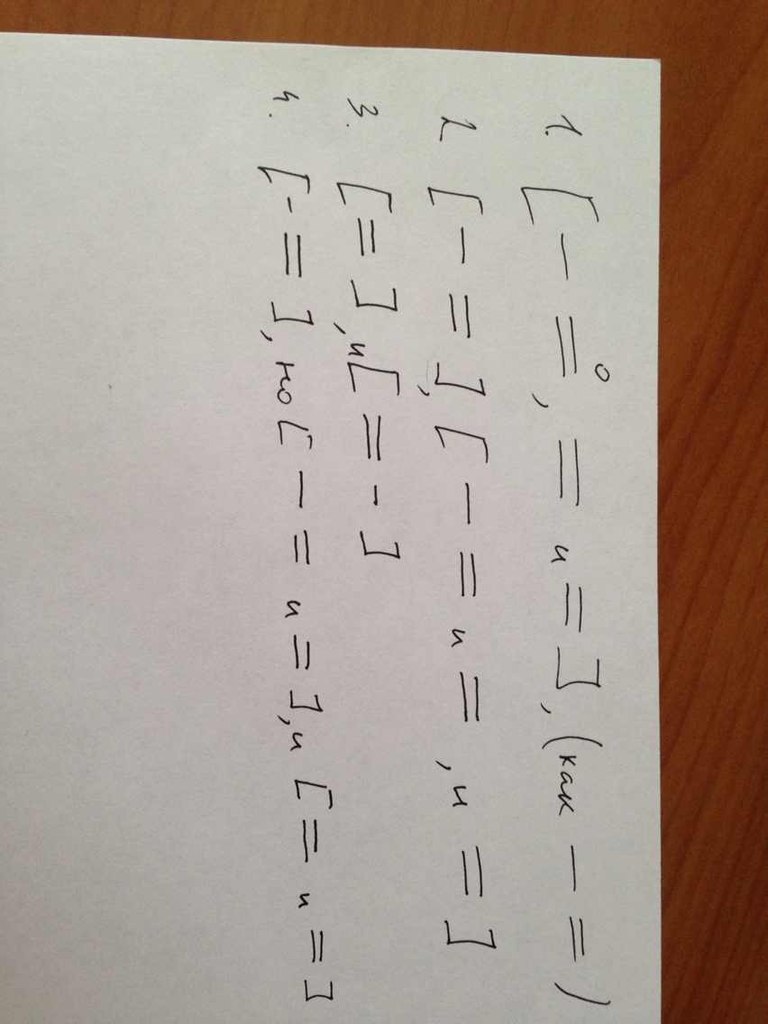 1. [ — =°, = и = ], (как — = )
2. [ — = ], [ — = и = , и = ]
3. [ = ], и [ = - ]
4. [ - = ], но [ — = и = ], и [ = и = ]